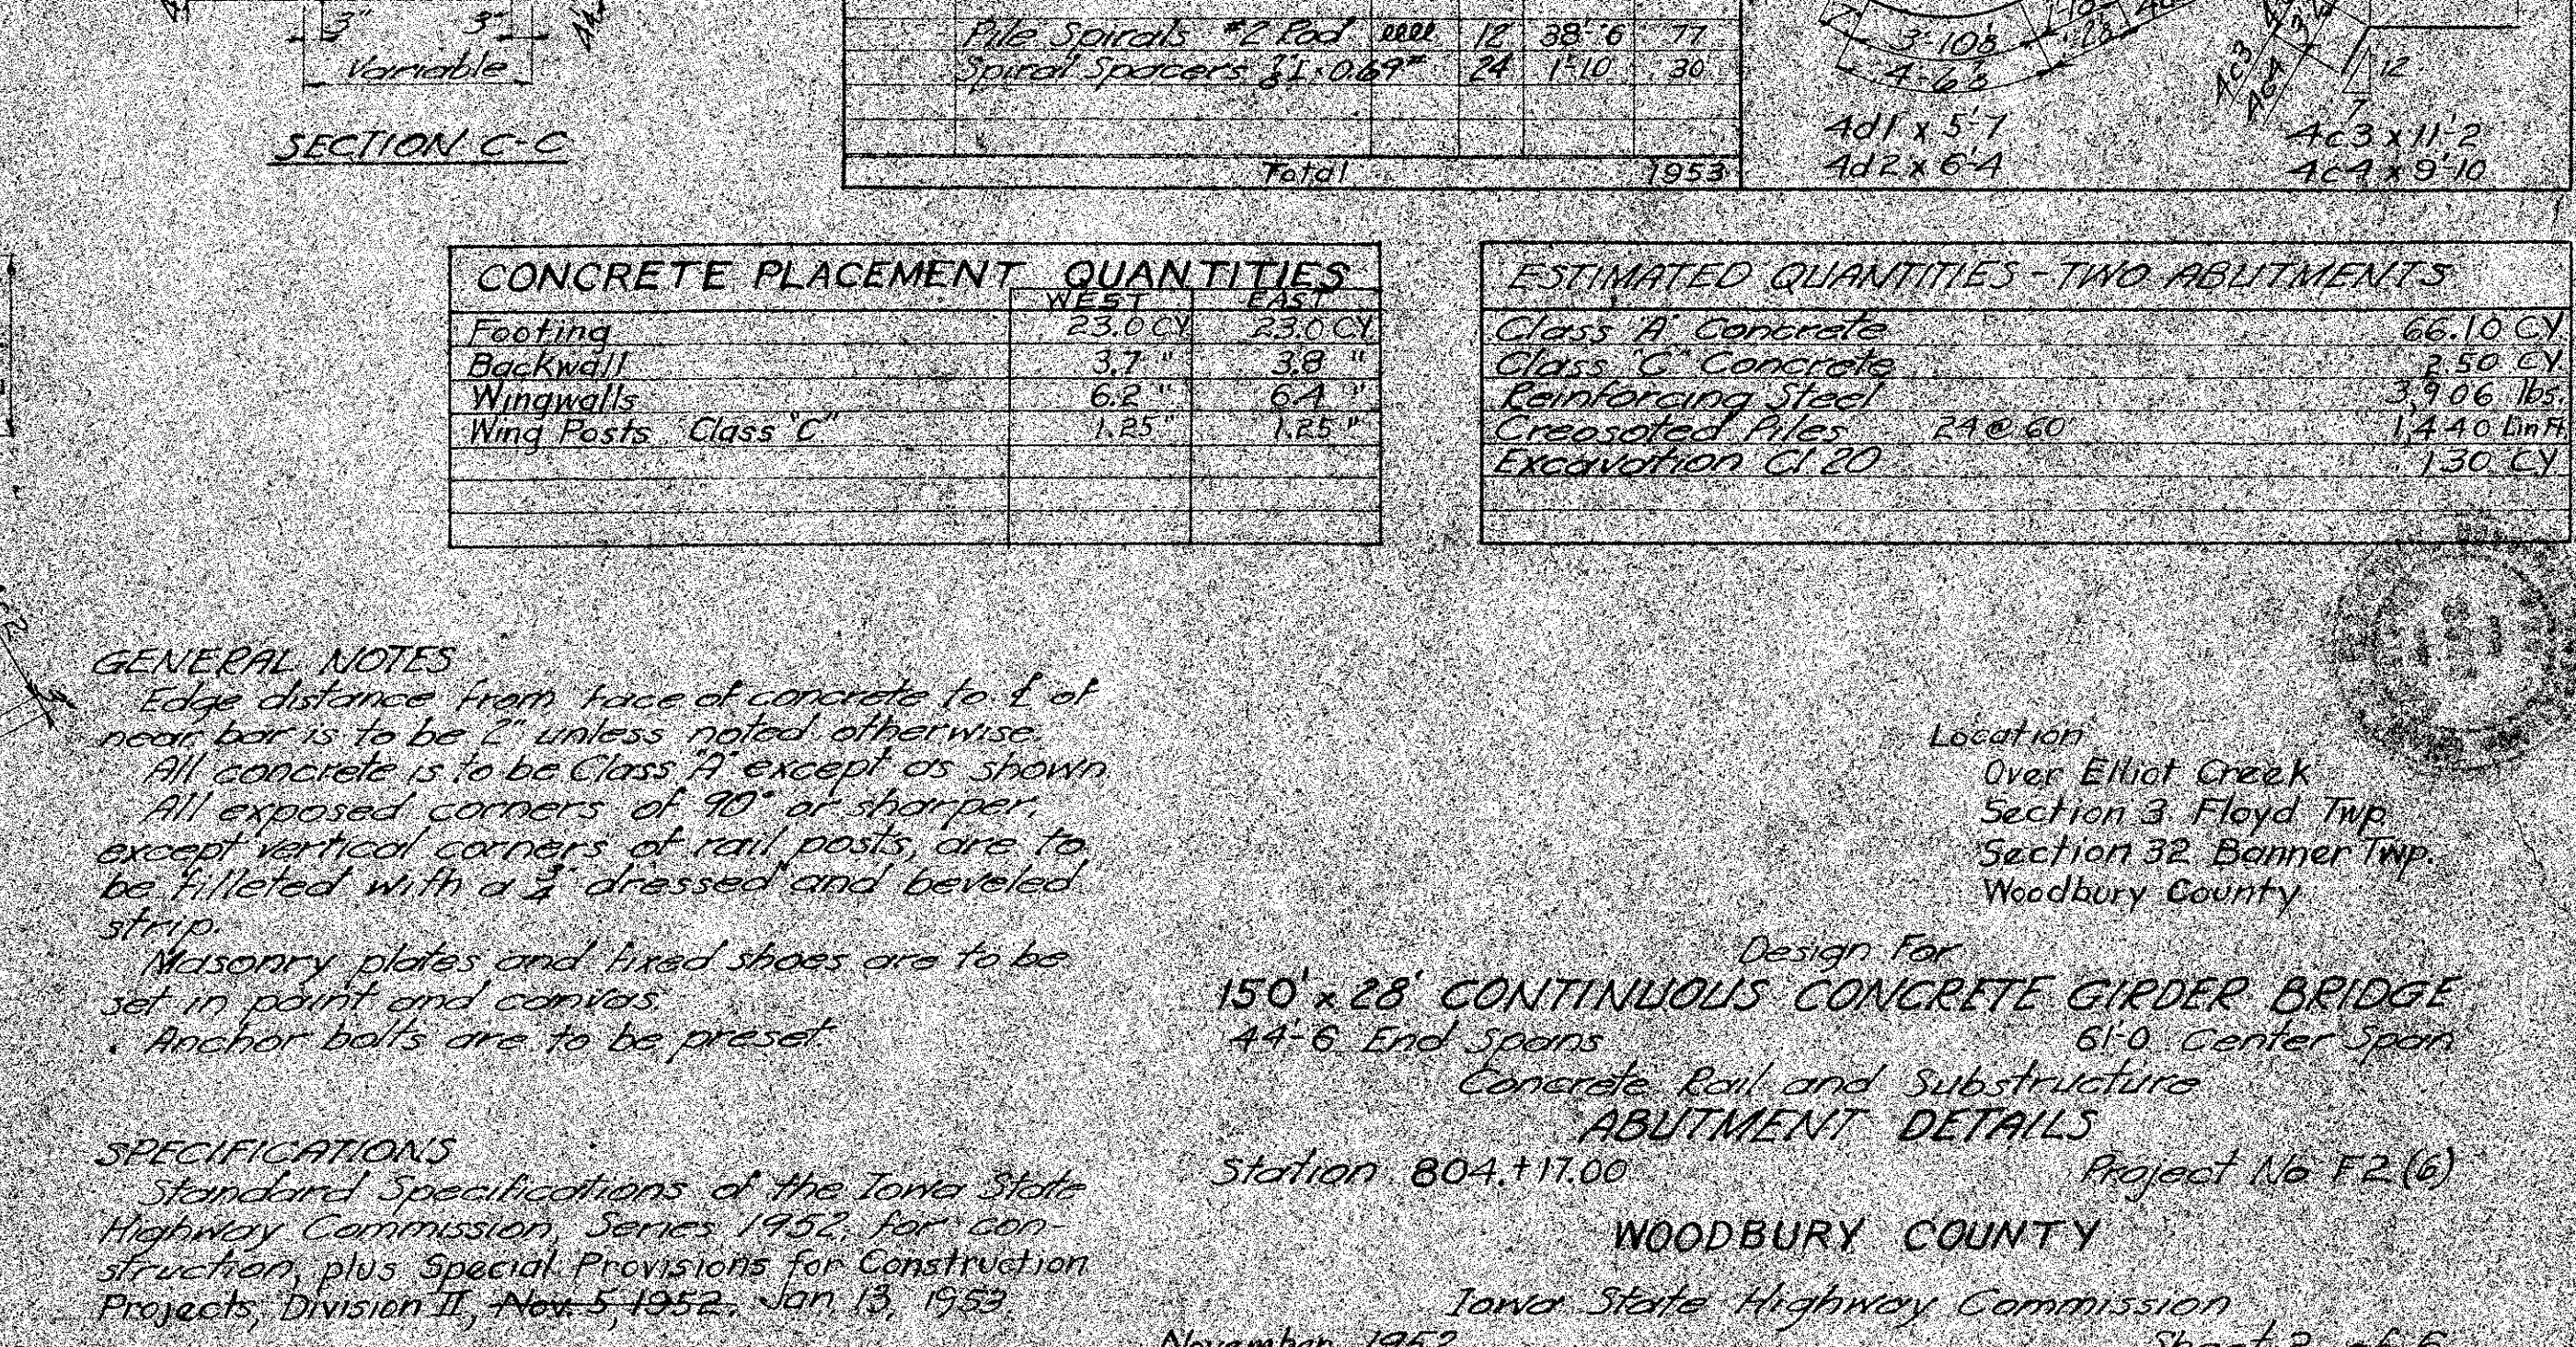 3" 3"
Variable
SECTION C-C
Pile Spirals #2 Rod 12 38'-6 77
Spiral Spacers 24 1'-10 30
Total 1953
12
7
4c3
4c4
4d1 x 5'-7
4d2 x 6'-4
4c3 x 11'-2
4c4 x 9'-10
CONCRETE PLACEMENT QUANTITIES
WEST EAST
Footing 23.0 CY 23.0 CY.
Backwall 3.7 " 3.8 "
Wingwalls 6.2 " 6.4 "
Wing Posts Class "C" 1.25 " 1.25 "
ESTIMATED QUANTITIES - TWO ABUTMENTS
Class "A" Concrete 66.10 CY.
Class "C" Concrete 2.50 CY.
Reinforcing Steel 3,906 lbs.
Creosoted Piles 24 @ 60' 1,440 Lin Ft.
Excavation Cl 20 130 CY
GENERAL NOTES
Edge distance from face of concrete to ℄ of
near bar is to be 2" unless noted otherwise.
All concrete is to be Class "A" except as shown.
All exposed corners of 90° or sharper,
except vertical corners of rail posts, are to
be filleted with a 3/4" dressed and beveled
strip.
Masonry plates and fixed shoes are to be
set in paint and canvas.
Anchor bolts are to be preset.
SPECIFICATIONS
Standard Specifications of the Iowa State
Highway Commission, Series 1952, for con-
struction, plus Special Provisions for Construction
Projects, Division II, Nov. 5, 1952. Jan. 13, 1953.
Location
Over Elliot Creek
Section 3 Floyd Twp.
Section 32 Banner Twp.
Woodbury County
Design For
150' x 28' CONTINUOUS CONCRETE GIRDER BRIDGE
44'-6 End Spans 61'-0 Center Span
Concrete Rail and Substructure
ABUTMENT DETAILS
Station 804.+17.00 Project No F2(6)
WOODBURY COUNTY
Iowa State Highway Commission
November 1952